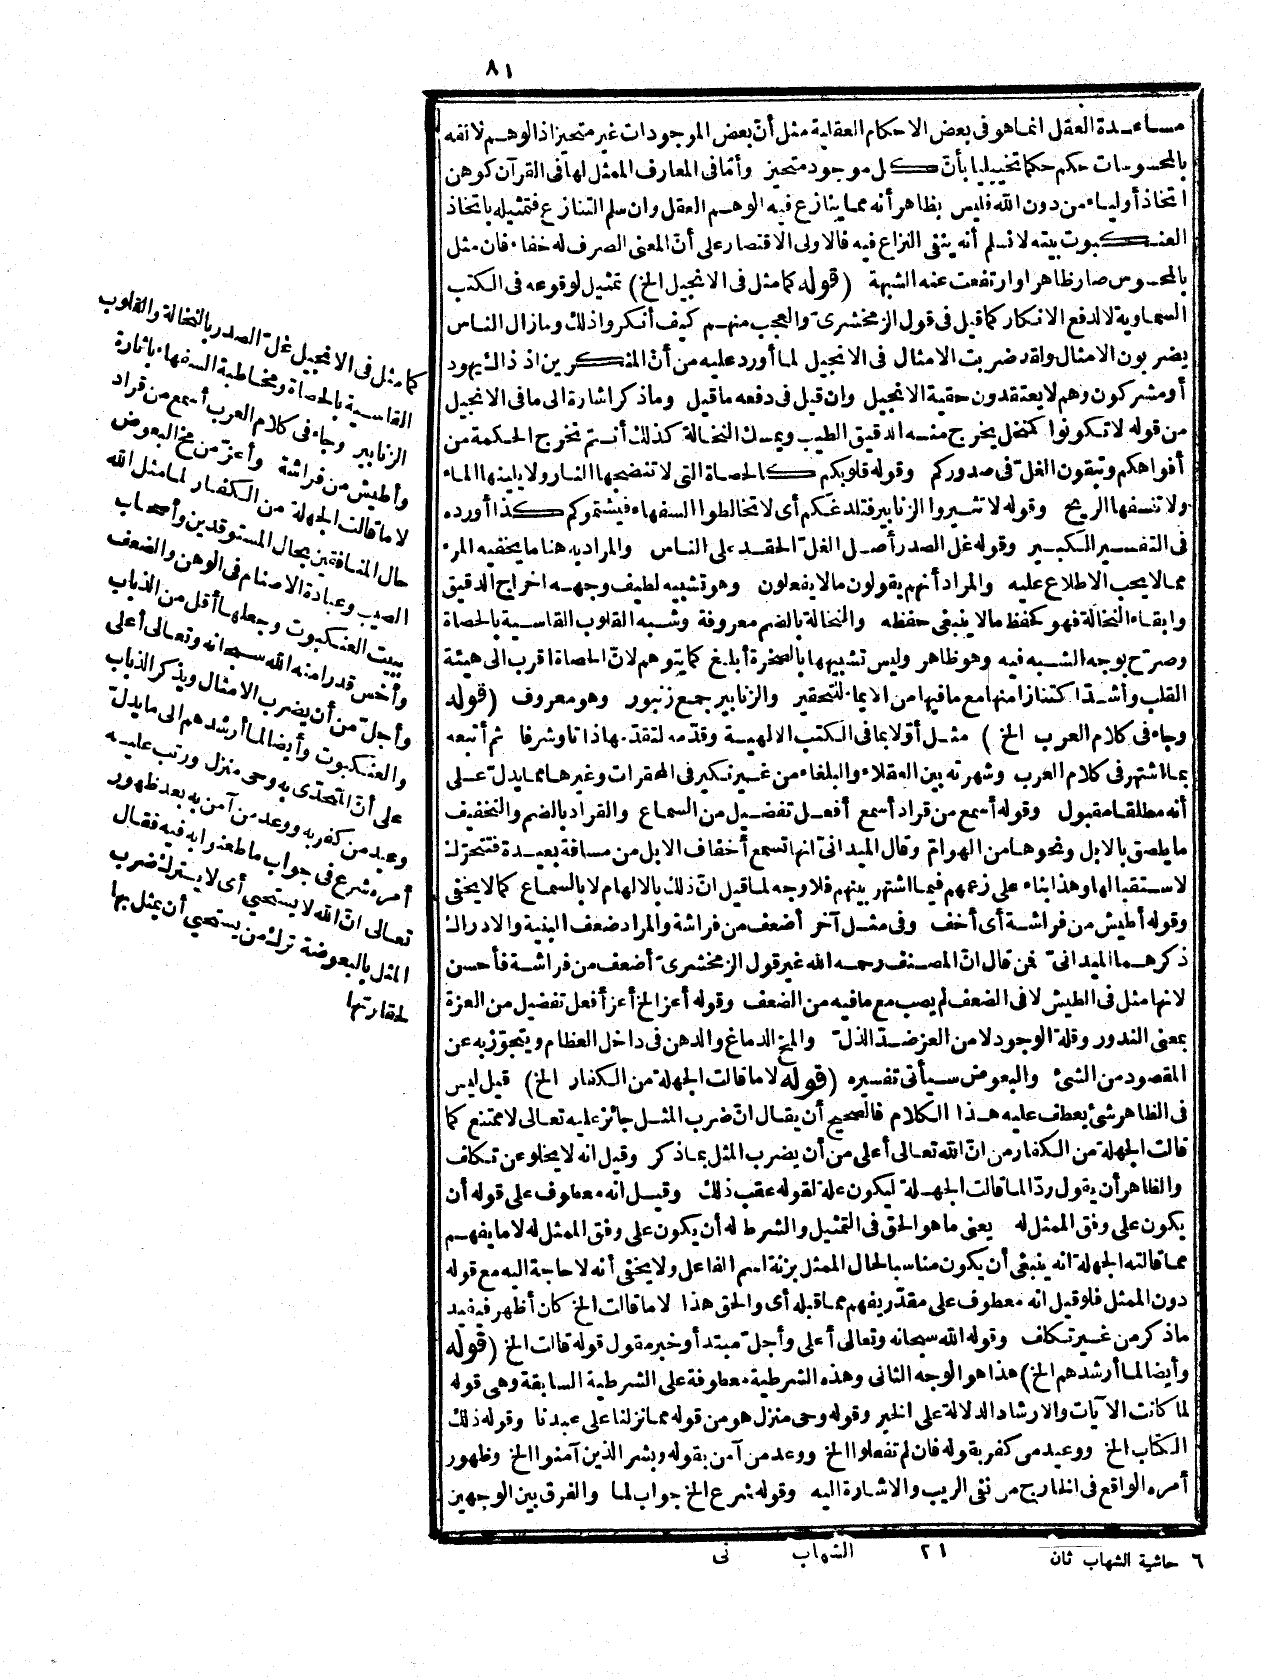 ٨١
مساعدة العقل انما هو فى بعض الاحكام العقلية مثل أنّ بعض الموجودات غير متحيز اذ الوهم لالفه
بالمحسوسات حكم حكما تخييليا بأنّ كل موجود متحيز وأمّا فى المعارف الممثل لها فى القرآن كوهن
اتخاذ أولياء من دون الله فليس بظاهر أنه مما ينازع فيه الوهم العقل وان سلم التنازع فتمثيله باتخاذ
العنكبوت بيته لا نسلم أنه ينفى النزاع فيه فالاولى الاقتصار على أنّ المعنى الصرف له خفاء فان مثل
بالمحسوس صار ظاهرا وارتفعت عنه الشبهة (قوله كما مثل فى الانجيل الخ) تمثيل لوقوعه فى الكتب
السماوية لا لدفع الانكار كما قيل فى قول الزمخشرىّ والعجب منهم كيف أنكروا ذلك وما زال الناس
يضربون الامثال ولقد ضربت الامثال فى الانجيل لما أورد عليه من أنّ المنكرين اذ ذاك يهود
أو مشركون وهم لا يعتقدون حقية الانجيل وان قيل فى دفعه ما قيل وما ذكر اشارة الى ما فى الانجيل
من قوله لا تكونوا كمنخل يخرج منه الدقيق الطيب ويمسك النخالة كذلك أنتم تخرج الحكمة من
أفواهكم وتبقون الغلّ فى صدوركم وقوله قلوبكم كالحصاة التى لا تنضجها النار ولا يلينها الماء
ولا تنسفها الريح وقوله لا تثيروا الزنابير فتلدغكم أى لا تخالطوا السفهاء فيشتموكم كذا أورده
فى التفسير الكبير وقوله غل الصدر أصل الغلّ الحقد على الناس والمراد به هنا ما يخفيه المرء
مما لا يحب الاطلاع عليه والمراد أنهم يقولون ما لا يفعلون وهو تشبيه لطيف وجهه اخراج الدقيق
وابقاء النخالة فهو كحفظ ما لا ينبغى حفظه والنخالة بالضم معروفة وشبه القلوب القاسية بالحصاة
وصرّح بوجه الشبه فيه وهو ظاهر وليس تشبيهها بالصخرة أبلغ كما يتوهم لانّ الحصاة اقرب الى هيئة
القلب وأشدّ اكتنازا منها مع ما فيها من الايماء لتحقير والزنابير جمع زنبور وهو معروف (قوله
وجاء فى كلام العرب الخ) مثل أولا بما فى الكتب الالهية وقدّمه لتقدّمها ذاتا وشرفا ثم أتبعه
بما اشتهر فى كلام العرب وشهرته بين العقلاء والبلغاء من غير نكير فى المحقرات وغيرها مما يدلّ على
أنه مطلقا مقبول وقوله أسمع من قراد أسمع أفعل تفضيل من السماع والقراد بالضم والتخفيف
ما يلصق بالابل ونحوها من الهوامّ وقال الميدانىّ انها تسمع أخفاف الابل من مسافة بعيدة فتتحرّك
لاستقبالها وهذا بناء على زعمهم فيما اشتهر بينهم فلا وجه لما قيل انّ ذلك بالالهام لا بالسماع كما لا يخفى
وقوله أطيش من فراشة أى أخف وفى مثل آخر أضعف من فراشة والمراد ضعف البنية والادراك
ذكرهما الميدانىّ فمن قال انّ المصنف رحمه الله غير قول الزمخشرىّ أضعف من فراشة فأحسن
لانها مثل فى الطيش لا فى الضعف لم يصب مع ما فيه من الضعف وقوله أعز الخ أعز أفعل تفضيل من العزة
بمعنى الندور وقلة الوجود لا من العز ضدّ الذلّ والمخ الدماغ والدهن فى داخل العظام ويتجوّز به عن
المقصود من الشئ والبعوض سيأتى تفسيره (قوله لا ما قالت الجهلة من الكفار الخ) قيل ليس
فى الظاهر شئ يعطف عليه هذا الكلام فالصحيح أن يقال انّ ضرب المثل جائز عليه تعالى لا ممتنع كما
قالت الجهلة من الكفار من انّ الله تعالى أعلى من أن يضرب المثل بما ذكر وقيل انه لا يخلو عن تكلف
والظاهر أن يقول ردّا لما قالت الجهلة ليكون علة لقوله عقب ذلك وقيل انه معطوف على قوله أن
يكون على وفق الممثل له يعنى ما هو الحق فى التمثيل والشرط له أن يكون على وفق الممثل له لا ما يفهم
مما قالته الجهلة انه ينبغى أن يكون مناسبا لحال الممثل بزنة اسم الفاعل ولا يخفى أنه لا حاجة اليه مع قوله
دون الممثل فلو قيل انه معطوف على مقدّر يفهم مما قبله أى والحق هذا لا ما قالت الخ كان أظهر فيفيد
ما ذكر من غير تكلف وقوله الله سبحانه وتعالى أعلى وأجلّ مبتدأ وخبر مقول قوله قالت الخ (قوله
وأيضا لما أرشدهم الخ) هذا هو الوجه الثانى وهذه الشرطية معطوفة على الشرطية السابقة وهى قوله
لما كانت الآيات والارشاد الدلالة على الخير وقوله وحى منزل هو من قوله مما نزلنا على عبدنا وقوله ذلك
الكتاب الخ ووعيد من كفر بقوله فان لم تفعلوا الخ ووعد من آمن بقوله وبشر الذين آمنوا الخ وظهور
أمره الواقع فى الخارج من نفى الريب والاشارة اليه وقوله شرع الخ جواب لما والفرق بين الوجهين
كما مثل فى الانجيل غلّ الصدر بالنخالة والقلوب
القاسية بالحصاة ومخاطبة السفهاء باثارة
الزنابير وجاء فى كلام العرب أسمع من قراد
وأطيش من فراشة وأعزّ من مخ البعوض
لا ما قالت الجهلة من الكفار لما مثل الله
حال المنافقين بحال المستوقدين وأصحاب
الصيب وعبادة الاصنام فى الوهن والضعف
ببيت العنكبوت وجعلها أقل من الذباب
وأخس قدرا منه الله سبحانه وتعالى أعلى
وأجلّ من أن يضرب الامثال ويذكر الذباب
والعنكبوت وأيضا لما أرشدهم الى ما يدلّ
على أنّ المتحدّى به وحى منزل ورتب عليه
وعيد من كفر به ووعد من آمن به بعد ظهور
أمره شرع فى جواب ما طعنوا به فيه فقال
تعالى انّ الله لا يستحيى أى لا يترك ضرب
المثل بالبعوضة ترك من يستحيى أن يمثل بها
لحقارتها
٦ حاشية الشهاب ثان ٢١ الشهاب نى